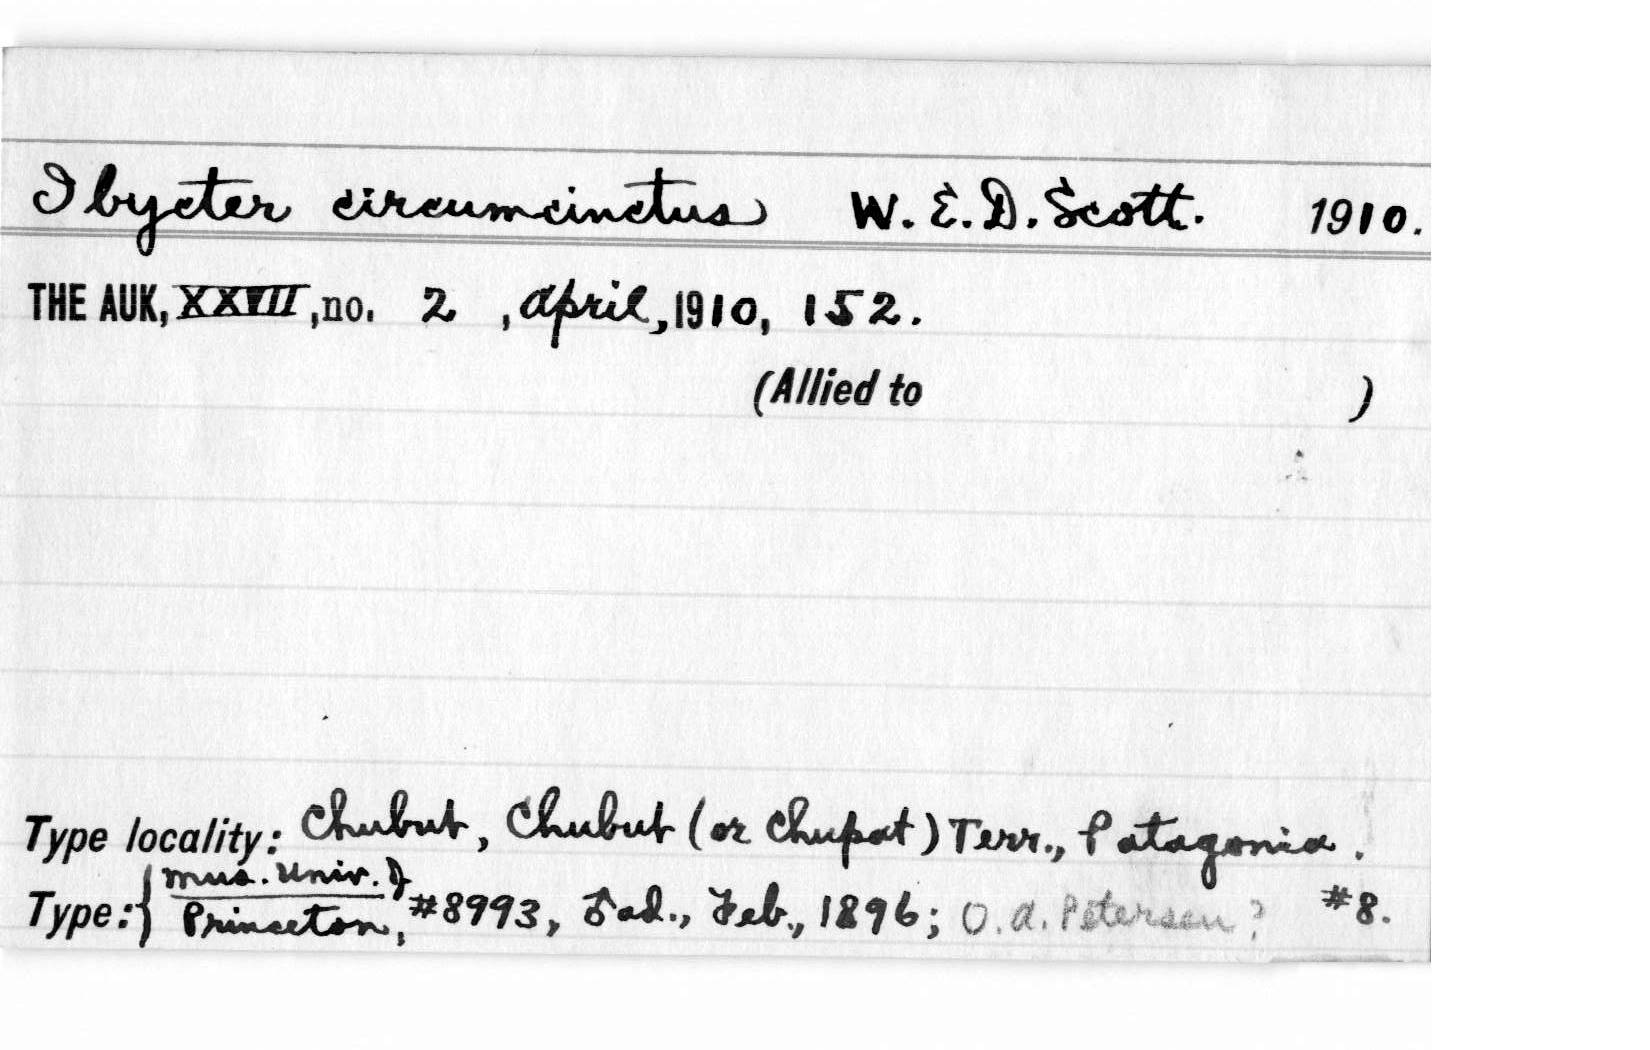 Ibycter circumcinctus W. E. D. Scott. 1910.
THE AUK, XXVII, no. 2, April, 1910, 152.
(Allied to )
Type locality: Chubut, Chubut (or Chupat) Terr., Patagonia.
Type: { Mus. Univ. of
Princeton, #8993, ♂ ad., Feb., 1896; O. A. Petersen? #8.